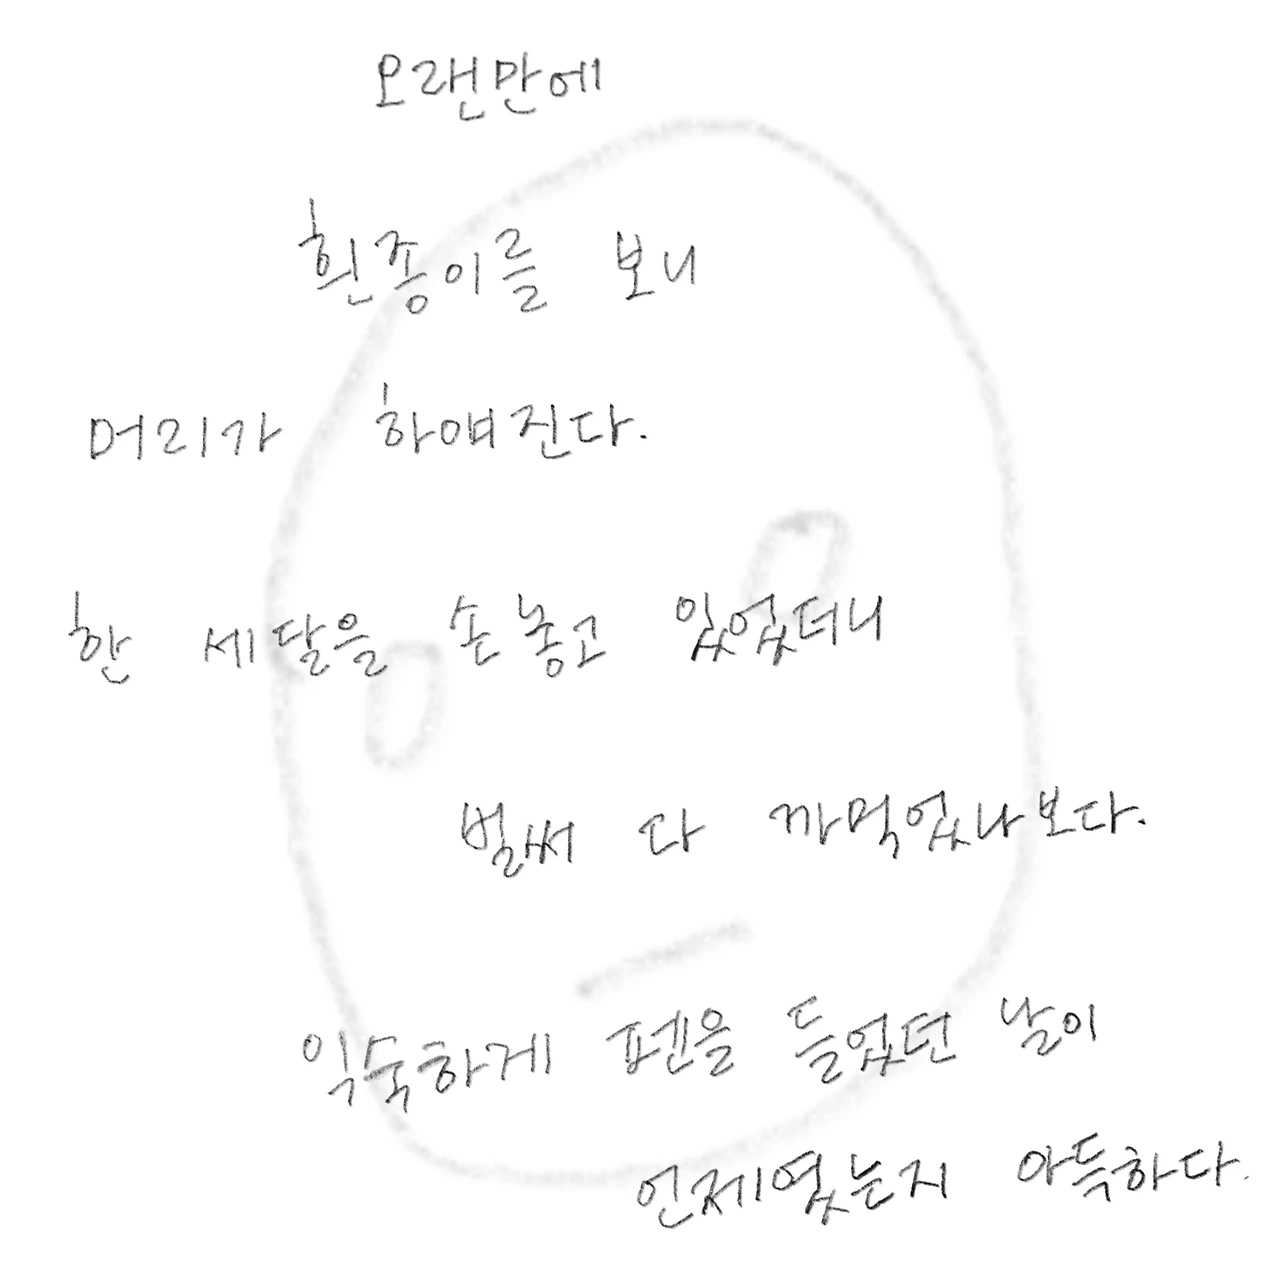 오랜만에
흰종이를 보니
머리가 하얘진다.
한 세달을 손놓고 있었더니
벌써 다 까먹었나보다.
익숙하게 펜을 들었던 날이
언제였는지 아득하다.